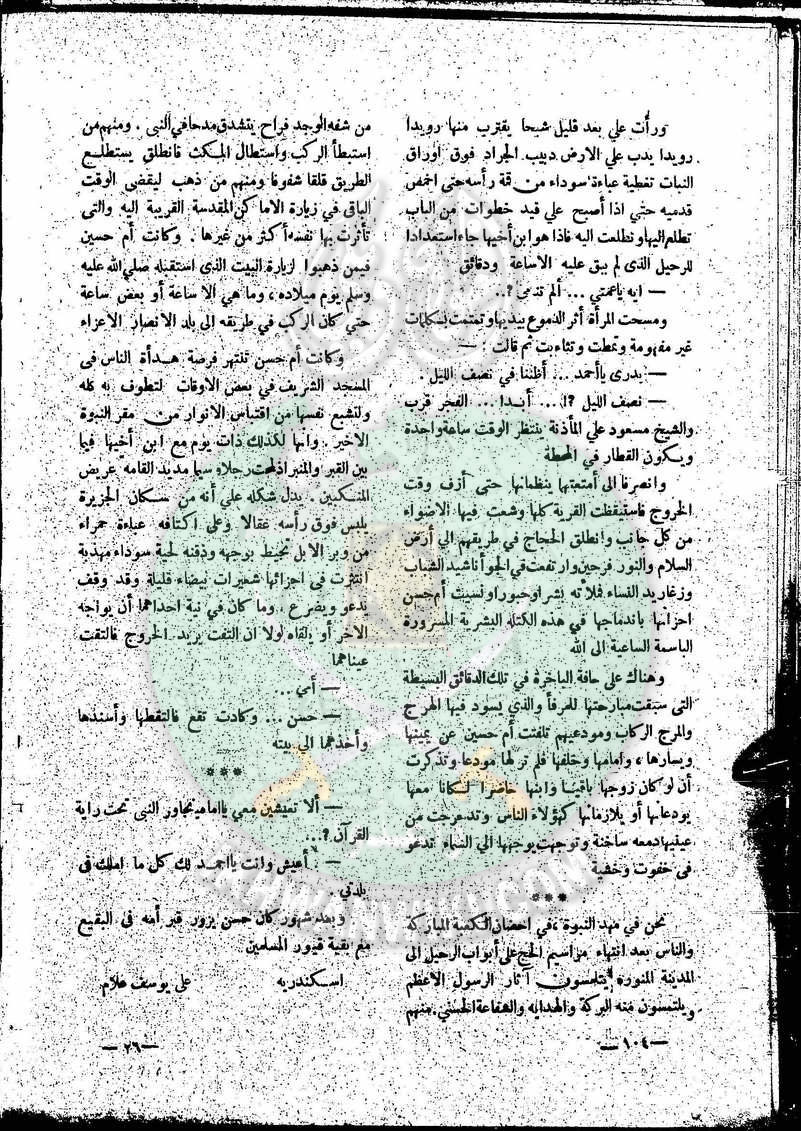 ورأت علي بعد قليل شبحا يقترب منها رويدا
رويدا يدب علي الارض دبيب الجراد فوق اوراق
النبات تغطية عباءة سوداء من قمة رأسه حتى اخمص
قدميه حتي اذا أصبح علي قيد خطوات من الباب
تطلع اليها وتطلعت اليه فاذا هو ابن أخيها جاء استعدادا
للرحيل الذى لم يبق عليه الا ساعة ودقائق
— ايه ياعمتي ... ألم تنمي ؟..
ومسحت المرأة أثر الدموع بيديها وتمتمت بكلمات
غير مفهومة وتمطت وتثاءبت ثم قالت : —
— بدرى ياأحمد ... أظننا في نصف الليل .
— نصف الليل ؟! ... أبدا ... الفجر قرب
والشيخ مسعود علي المأذنة ينتظر الوقت ساعة واحدة
ويكون القطار في المحطة
وانصرفا الى أمتعتها ينظمانها حتى أزف وقت
الخروج فاستيقظت القرية كلها وشعت فيها الاضواء
من كل جانب وانطلق الحجاج في طريقهم الى أرض
السلام والنور فرحين وارتفعت في الجو أناشيد الشباب
وزغاريد النساء فملأته بشرا وحبورا ونسيت أم حسن
احزانها باندماجها في هذه الكتلة البشرية المسرورة
الباسمة الساعية الى الله
وهناك على حافة الباخرة في تلك الدقائق البسيطة
التى سبقت مبارحتها للمرفأ والذي يسود فيها الهرج
والمرج الركاب ومودعيهم تلفتت أم حسين عن يمينها
ويسارها ، وامامها وخلفها فلم تر لها مودعا وتذكرت
أن لو كان زوجها باقيا وابنها حاضرا لكانا معها
يودعانها أو يلازمانها كهؤلاء الناس وتدحرجت من
عينيها دمعه ساخنة وتوجهت بوجهها الي السماء تدعو
فى خفوت وخشية
***
نحن في مهد النبوة ، في احضان الكعبة المباركة
والناس بعد انتهاء مراسيم الحج على أبواب الرحيل الى
المدينة المنوره يتلمسون آثار الرسول الاعظم
ويلتمسون منه البركة والهدايه والشفاعة الحسني . منهم
— ١٠٤ —
من شفه الوجد فراح يتشدق مدحا في النبى . ومنهم من
استبطأ الركب واستطال المكث فانطلق يستطلع
الطريق قلقا شغوفا ومنهم من ذهب ليقضى الوقت
الباقى في زيارة الاماكن المقدسة القريبة اليه والتى
تأثرت بها نفسه أكثر من غيرها . وكانت أم حسين
فيمن ذهبوا لزيارة البيت الذى استقبله صلي الله عليه
وسلم يوم ميلاده ، وما هي الا ساعة أو بعض ساعة
حتي كان الركب في طريقه الى بلد الانصار الاعزاء
وكانت أم حسن تنتهر فرصة هدأة الناس فى
المسجد الشريف في بعض الاوقات لتطوف به كله
ولتشبع نفسها من اقتباس الانوار من مقر النبوة
الاخير . وانها لكذلك ذات يوم مع ابن أخيها فيما
بين القبر والمنبر اذ لمحت رجلا وسيما مديد القامه عريض
المنكبين . يدل شكله علي أنه من سكان الجزيرة
يلبس فوق رأسه عقالا وعلى اكتافه عباءة حمراء
من وبر الابل تحيط بوجهه وذقنه لحية سوداء مهدبة
انتثرت فى اجزائها شعيرات بيضاء قليلة وقد وقف
يدعو ويضرع . وما كان في نية احداهما أن يواجه
الآخر أو يلقاه لولا ان التفت يريد الخروج فالتقت
عيناهما
— أمي ...
— حسن ... وكادت تقع فالتقطها وأسندها
وأخذهما الي بيته
***
— ألا تعيشين معي ياامايه تجاور النبى تحت راية
القرآن ؟...
— . أعيش وانت يااحمد لك كل ما املك فى
بلدتى .
وبعد شهور كان حسن يزور قبر أمه فى البقيع
مع بقية قبور المسلمين
اسكندريه
على يوسف علام
— ٢٦ —
KAWANYAKU.COM